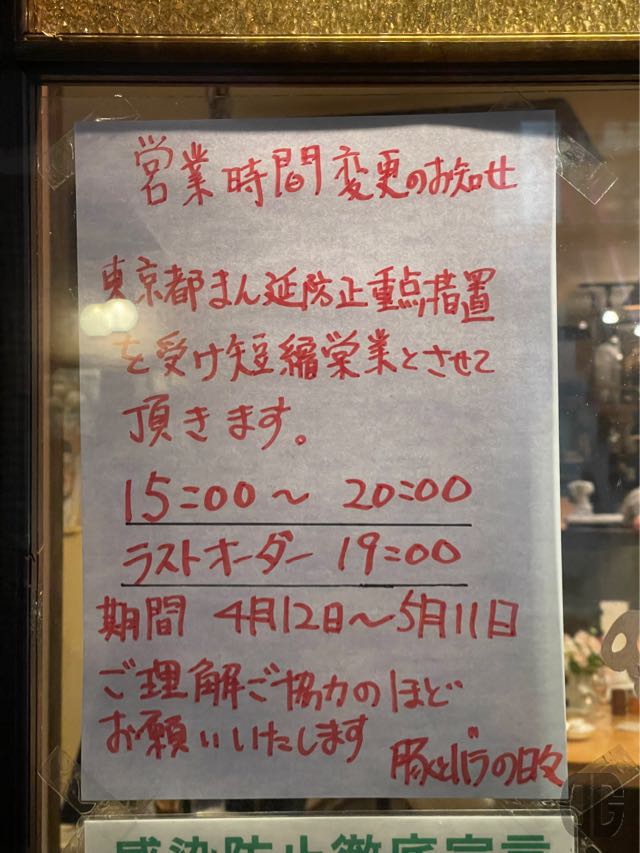 営業時間変更のお知せ
東京都まん延防止重点措置
を受け短編営業とさせて
頂きます。
15:00～20:00
ラストオーダー 19:00
期間 4月12日～5月11日
ご理解ご協力のほど
お願いいたします
豚とバラの日々
感染防止徹底宣言